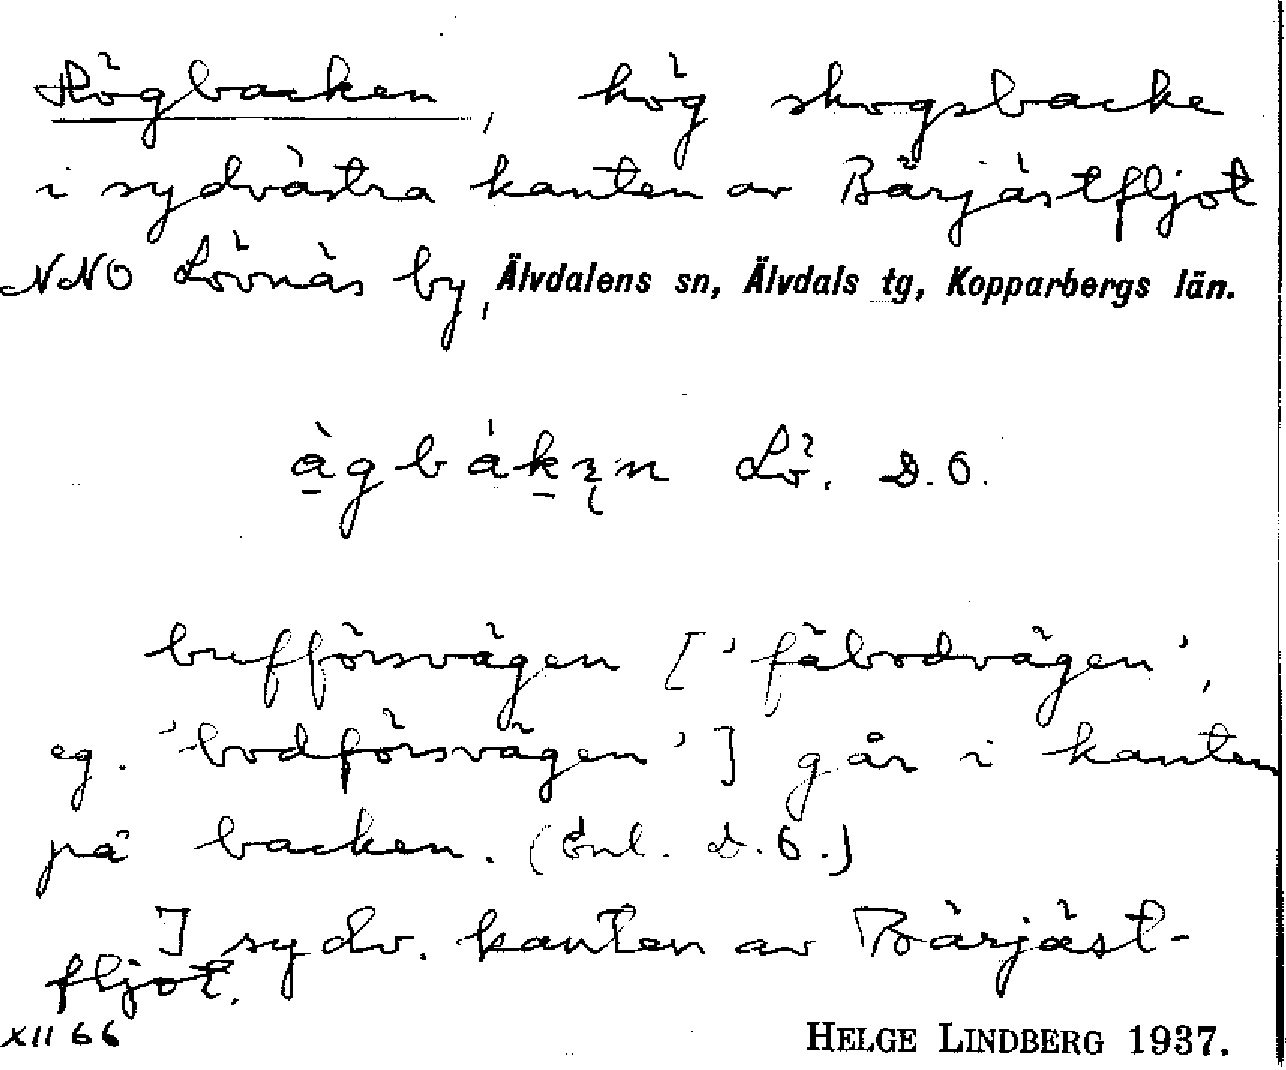 Högbacken, hög skogsbacke
i sydvästra kanten av Bärjästfljot
NNO Lövnäs by, Älvdalens sn, Älvdals tg, Kopparbergs län.
Lö. D.O.
bufförsvägen ['fäbodvägen',
eg. 'bodförsvägen'] går i kanten
på backen. (Enl. D.O.)
I sydv. kanten av Bärjäst-
fljot.
XII 66
HELGE LINDBERG 1937.